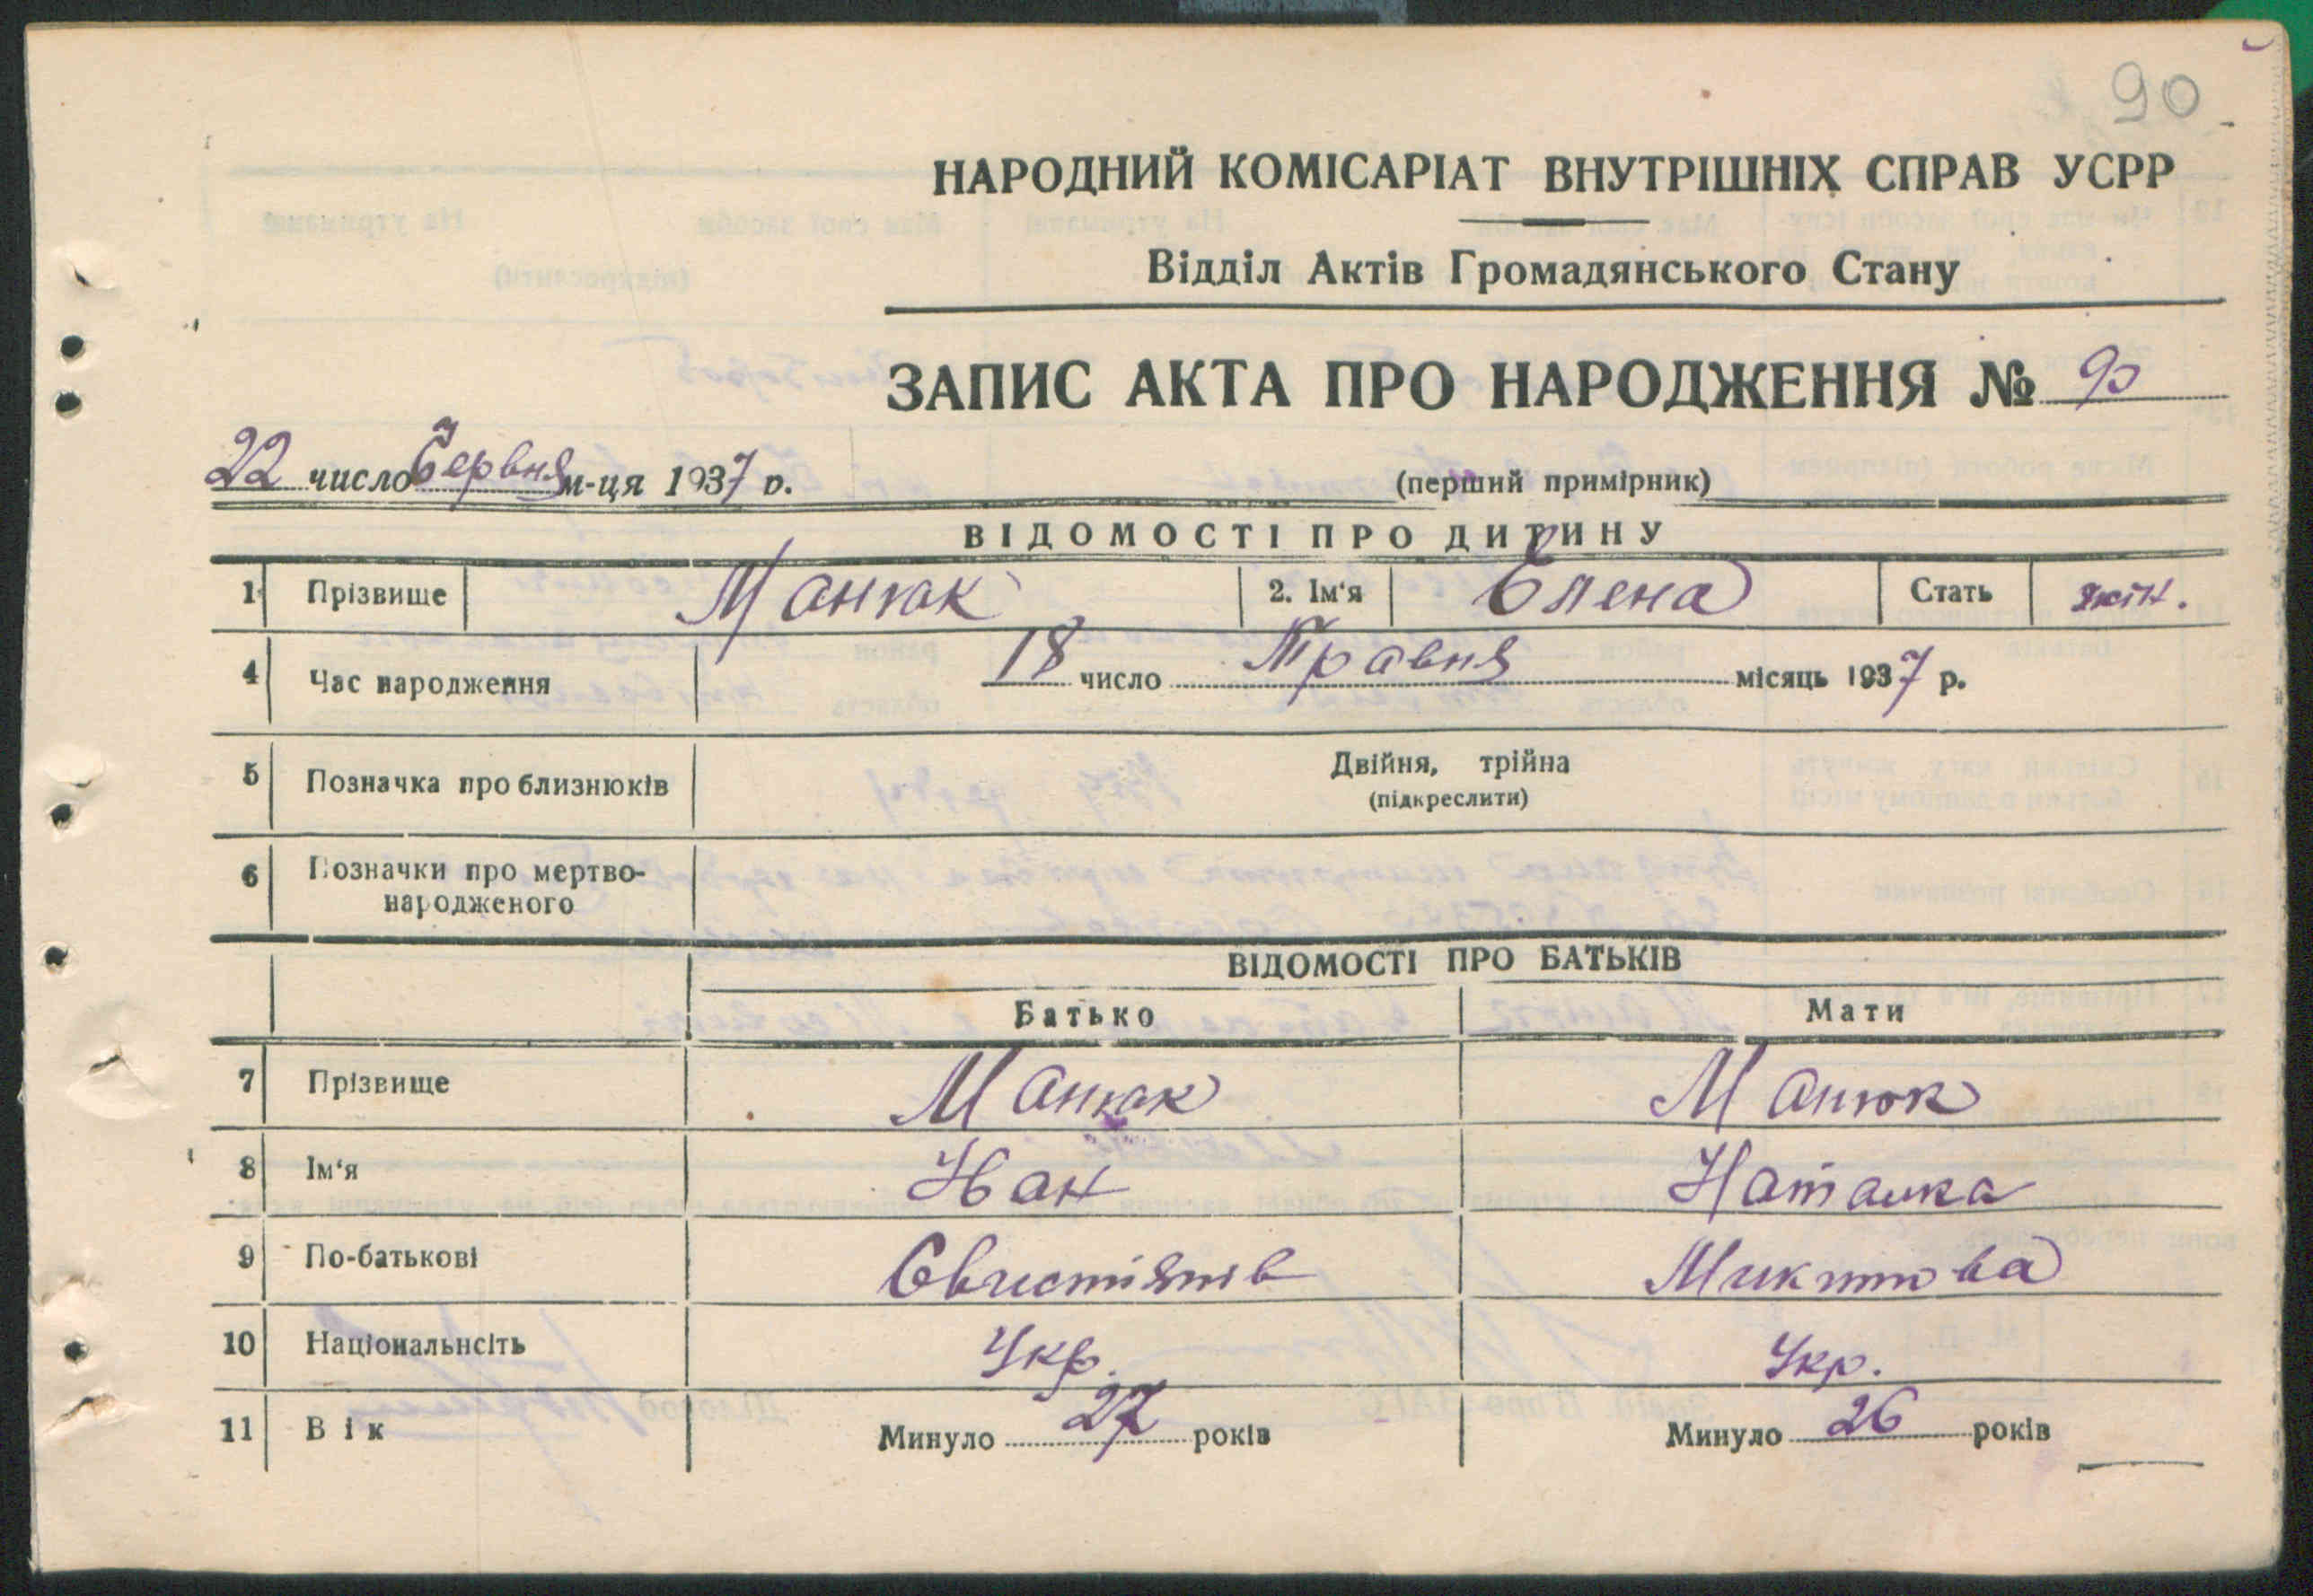 90
НАРОДНИЙ КОМІСАРІАТ ВНУТРІШНІХ СПРАВ УСРР
Відділ Актів Громадянського Стану
ЗАПИС АКТА ПРО НАРОДЖЕННЯ № 90
22 число Червня м-ця 1937 р. (перший примірник)
ВІДОМОСТІ ПРО ДИТИНУ
1 Прізвище Манюк 2. Ім'я Єлена Стать жін.
4 Час народження 18 число Травня місяць 1937 р.
5 Позначка про близнюків Двійня, трійна
(підкреслити)
6 Позначки про мертво-
народженого
ВІДОМОСТІ ПРО БАТЬКІВ
Батько Мати
7 Прізвище Манюк Манюк
8 Ім'я Іван Наталка
9 По-батькові
10 Національнсіть Укр. Укр.
11 Вік Минуло 27 років Минуло 26 років